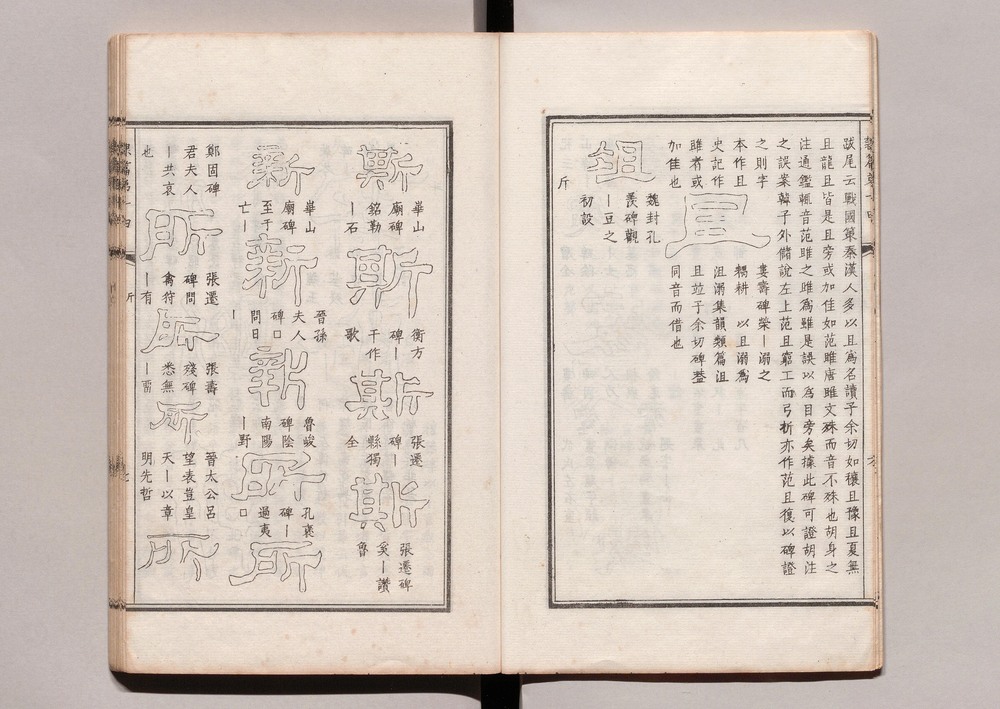 跋尾云戰國策秦漢人多以且為名讀子余切如穰且豫且夏無
且龍且皆是且旁或加隹如范雎唐雎文殊而音不殊也胡身之
注通鑑輒音范雎之雎為雖是誤以為目旁矣據此碑可證胡注
之誤案韓子外儲說左上范且窮工而弓折亦作范且復以碑證
之則字
本作且
史記作
雎者或
加隹也
且
婁壽碑榮丨溺之
耦耕 以且溺為
沮溺集韻類篇沮
且竝于余切碑葢
同音而借也
俎
魏封孔
羨碑觀
丨豆之
初設
斤
斯
華山
廟碑
銘勒
丨石
斯
衡方
碑丨
干作
歌
斯
張遷
碑丨
縣獨
全
斯
張遷碑
奚丨讚
魯
新
華山
廟碑
至于
亡丨
新
晉孫
夫人
碑口
問日
丨
新
魯峻
碑陰
南陽
丨野
所
孔褒
碑丨
過夷
口
所
鄭固碑
君夫人
丨共哀
也
所
張遷
碑問
禽狩
丨有
所
張壽
殘碑
悉無
丨畱
所
晉太公呂
望表豈皇
天丨以章
明先哲
所